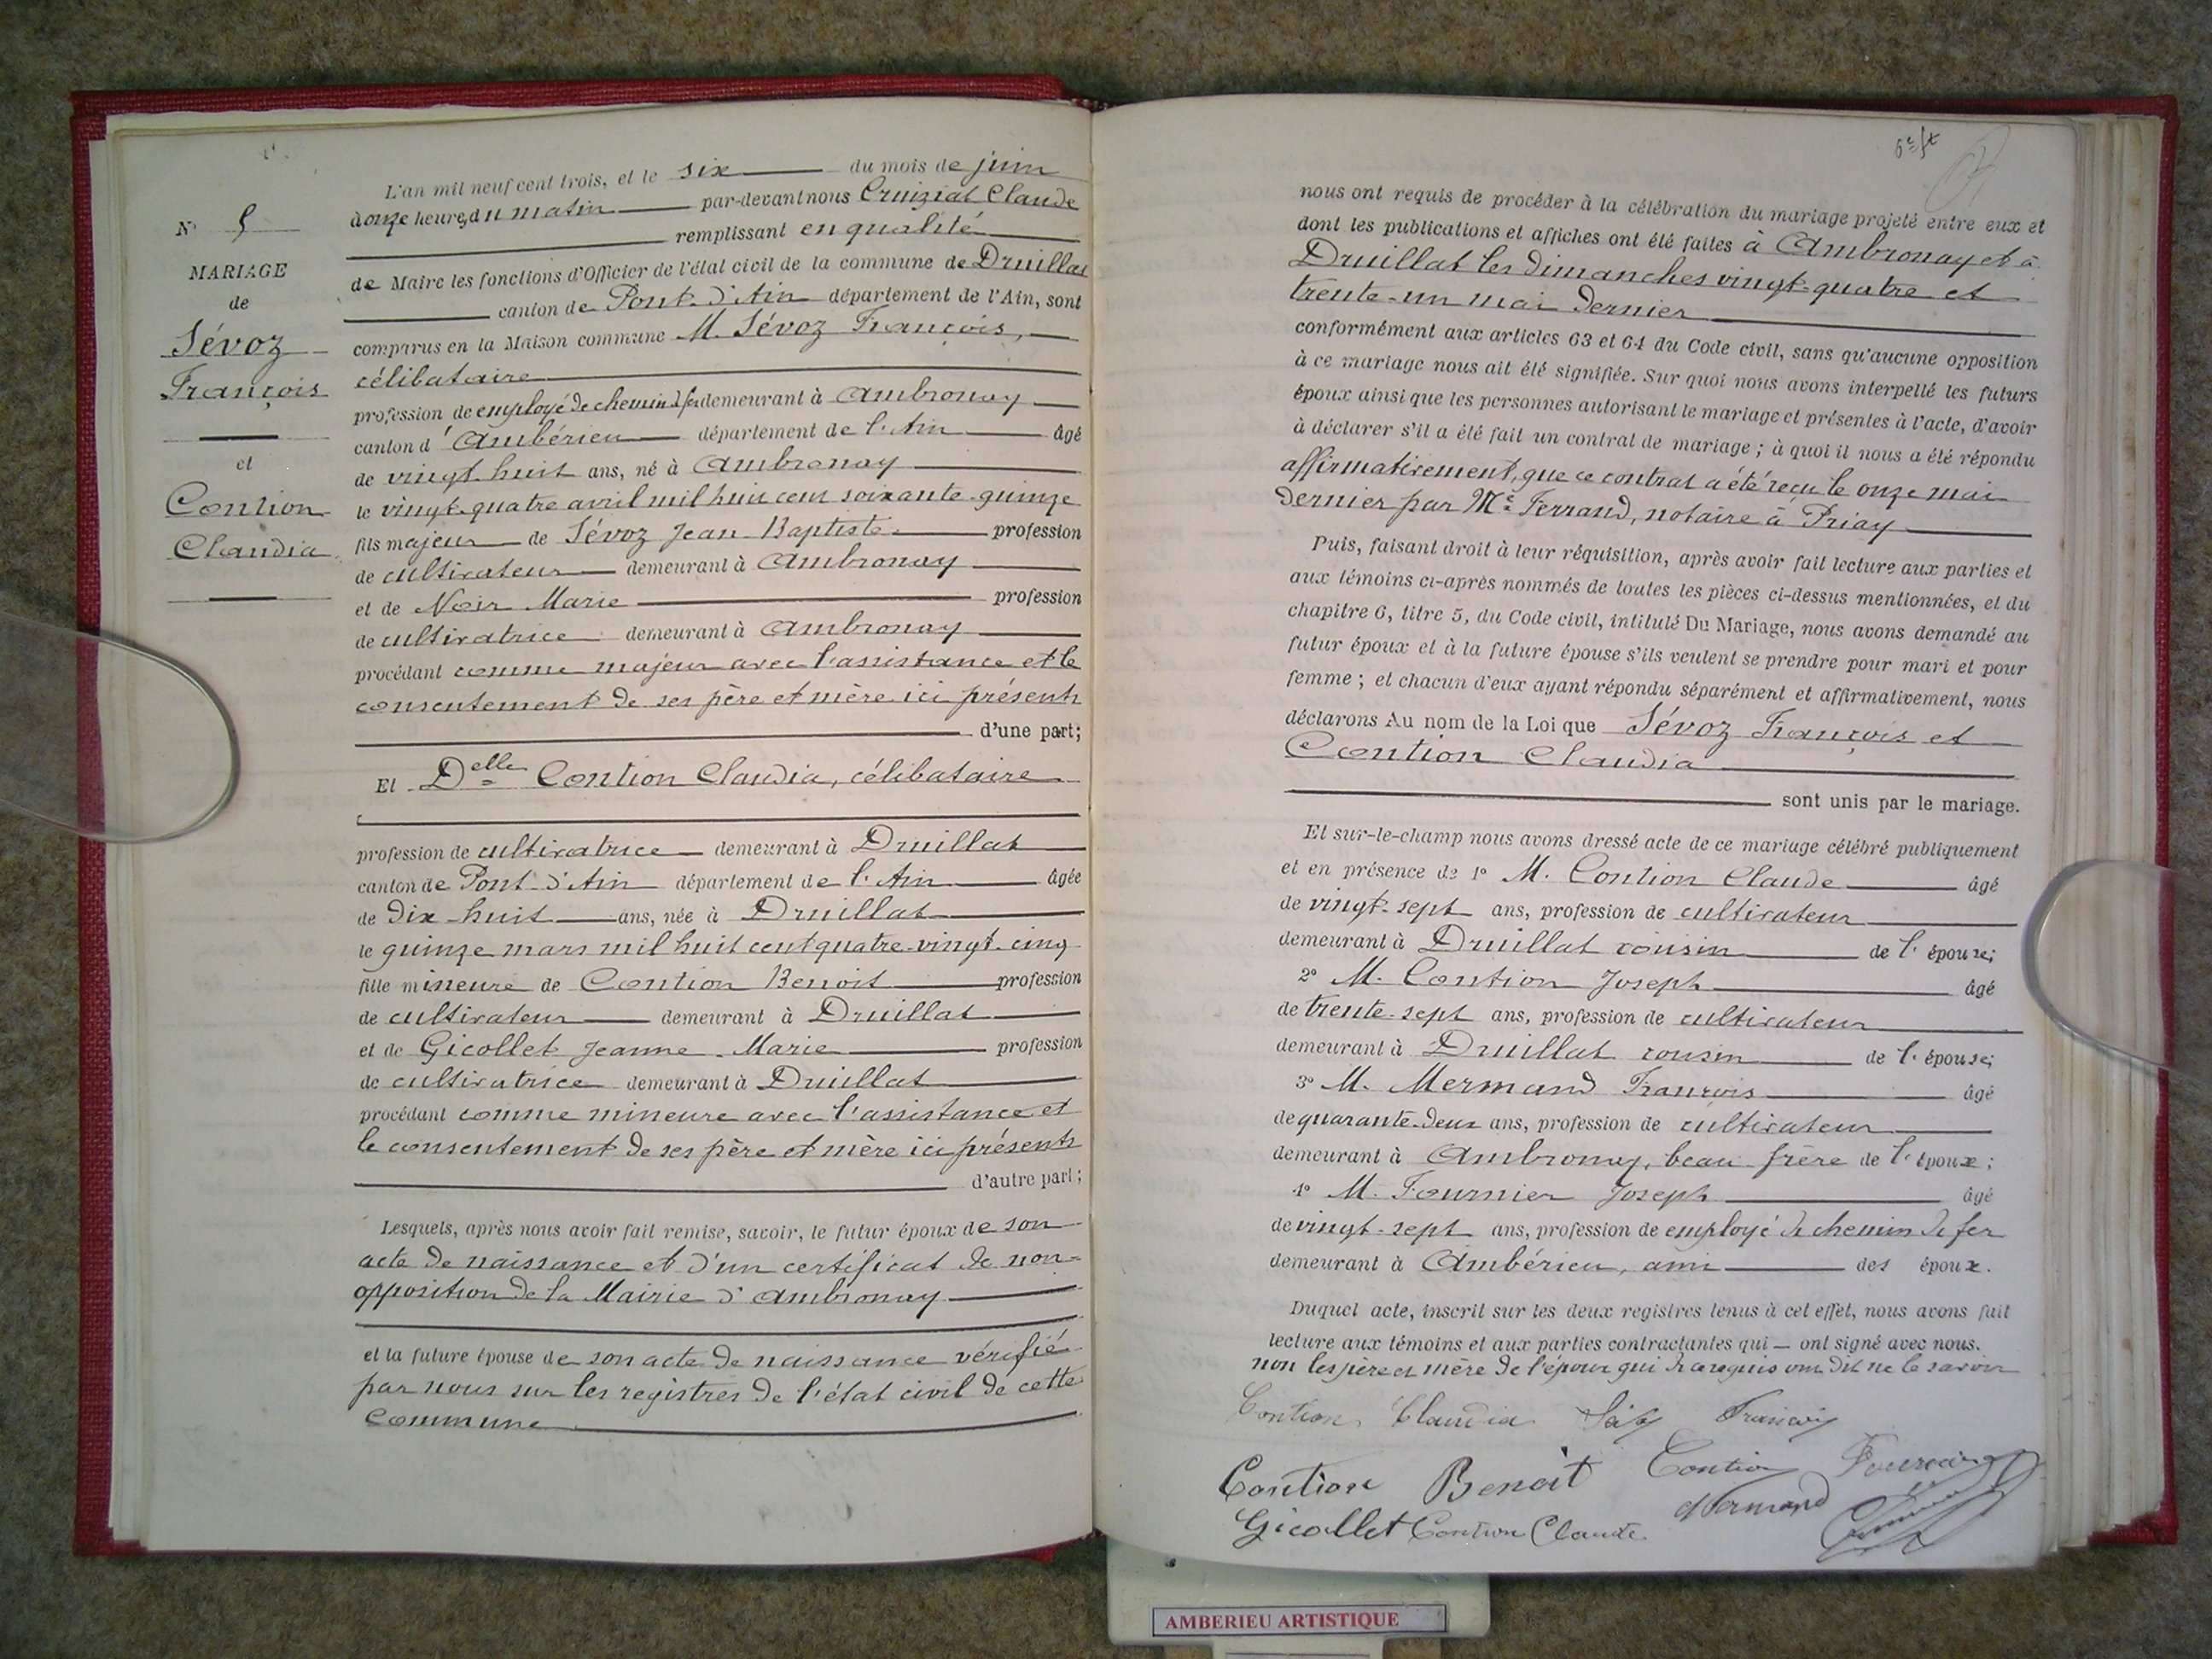 N° 5
MARIAGE
de
Sévoz
François
et
Contion
Claudia
L'an mil neuf cent trois, et le six du mois de juin
à onze heures du matin par-devant nous Cruiziat Claude
remplissant en qualité
de Maire les fonctions d'Officier de l'état civil de la commune de Druillat
canton de Pont-d'Ain département de l'Ain, sont
comparus en la Maison commune M. Sévoz François,
célibataire
profession de employé de chemin de fer demeurant à Ambronay
canton d'Ambérieu département de l'Ain âgé
de vingt-huit ans, né à Ambronay
le vingt-quatre avril mil huit cent soixante-quinze
fils majeur de Sévoz Jean Baptiste profession
de cultivateur demeurant à Ambronay
et de Noir Marie profession
de cultivatrice demeurant à Ambronay
procédant comme majeur avec l'assistance et le
consentement de ses père et mère ici présents
d'une part;
Et Delle Contion Claudia, célibataire
profession de cultivatrice demeurant à Druillat
canton de Pont-d'Ain département de l'Ain âgée
de dix-huit ans, née à Druillat
le quinze mars mil huit cent quatre-vingt-cinq
fille mineure de Contion Benoit profession
de cultivateur demeurant à Druillat
et de Gicollet Jeanne-Marie profession
de cultivatrice demeurant à Druillat
procédant comme mineure avec l'assistance et
le consentement de ses père et mère ici présents
d'autre part;
Lesquels, après nous avoir fait remise, savoir, le futur époux de son
acte de naissance et d'un certificat de non-
opposition de la Mairie d'Ambronay
et la future épouse de son acte de naissance vérifié
par nous sur les registres de l'état civil de cette
commune
nous ont requis de procéder à la célébration du mariage projeté entre eux et
dont les publications et affiches ont été faites à Ambronay et à
Druillat les dimanches vingt-quatre et
trente-un mai dernier
conformément aux articles 63 et 64 du Code civil, sans qu'aucune opposition
à ce mariage nous ait été signifiée. Sur quoi nous avons interpellé les futurs
époux ainsi que les personnes autorisant le mariage et présentes à l'acte, d'avoir
à déclarer s'il a été fait un contrat de mariage; à quoi il nous a été répondu
affirmativement, que ce contrat a été reçu le onze mai
dernier par Me Ferrand, notaire à Priay
Puis, faisant droit à leur réquisition, après avoir fait lecture aux parties et
aux témoins ci-après nommés de toutes les pièces ci-dessus mentionnées, et du
chapitre 6, titre 5, du Code civil, intitulé Du Mariage, nous avons demandé au
futur époux et à la future épouse s'ils veulent se prendre pour mari et pour
femme; et chacun d'eux ayant répondu séparément et affirmativement, nous
déclarons Au nom de la Loi que Sévoz François et
Contion Claudia
sont unis par le mariage.
Et sur-le-champ nous avons dressé acte de ce mariage célébré publiquement
et en présence de 1° M. Contion Claude âgé
de vingt-sept ans, profession de cultivateur
demeurant à Druillat cousin de l'épouse;
2° M. Contion Joseph âgé
de trente-sept ans, profession de cultivateur
demeurant à Druillat cousin de l'épouse;
3° M. Mermand François âgé
de quarante-deux ans, profession de cultivateur
demeurant à Ambronay, beau-frère de l'époux;
4° M. Fournier Joseph âgé
de vingt-sept ans, profession de employé de chemin de fer
demeurant à Ambérieu, ami des époux.
Duquel acte, inscrit sur les deux registres tenus à cet effet, nous avons fait
lecture aux témoins et aux parties contractantes qui — ont signé avec nous.
non les père et mère de l'époux qui de ce requis ont dit ne le savoir
Contion Claudia Sévoz François
Contion Benoit Contion Fournier
Gicollet Contion Claude Mermand
AMBERIEU ARTISTIQUE